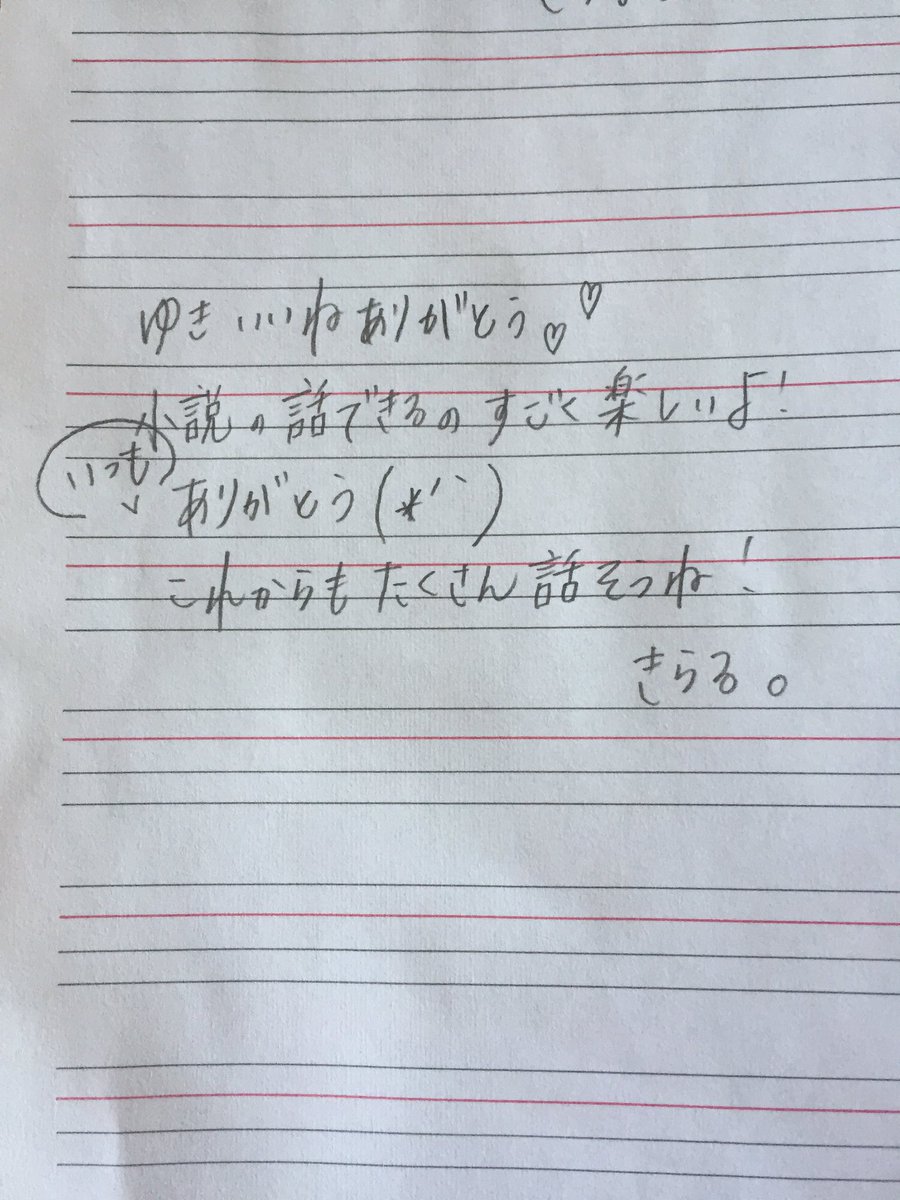 ゆき いいねありがとう♡♡
小説の話できるの すごく楽しいよ!
いつも ありがとう(*´`)
これからも たくさん 話そうね!
きらる。